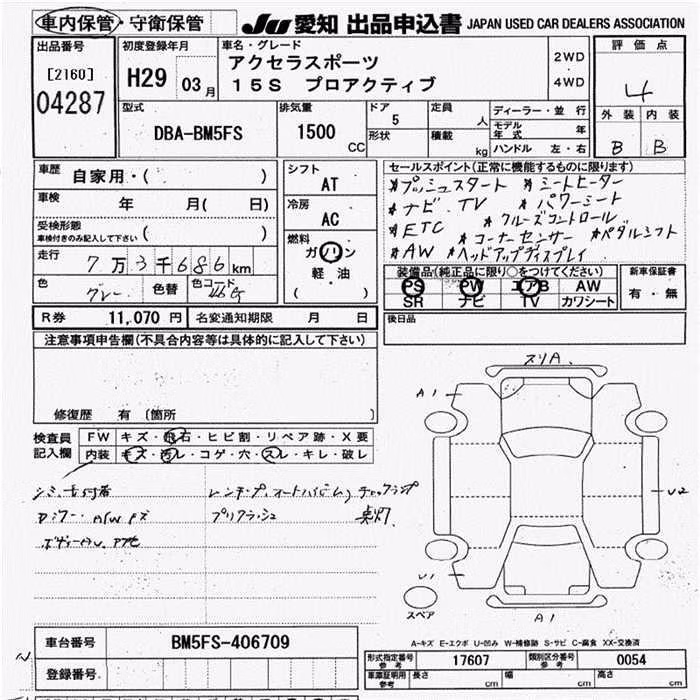 車内保管・守衛保管 JU 愛知 出品申込書 JAPAN USED CAR DEALERS ASSOCIATION
出品番号 初度登録年月 車名・グレード 評価点
[2160] H29 03月 アクセラスポーツ 2WD
04287 15S プロアクティブ 4WD 4
型式 排気量 ドア 定員 ディーラー・並行 外装 内装
DBA-BM5FS 1500 CC 5 人 モデル年式 年
形状 積載 kg ハンドル 左・右 B B
車歴 自家用・( ) シフト AT セールスポイント(正常に機能するものに限ります)
*プッシュスタート *シートヒーター
車検 年 月( 日) 冷房 AC *ナビ.TV *パワーシート
受検形態 *ETC *クルーズコントロール
車検付きのみ記入して下さい ( ) *コーナーセンサー *パドルシフト
走行 7万3千686km 燃料 ガソリン *AW *ヘッドアップディスプレイ
軽・油 装備品(純正品に限り○をつけてください) 新車保証書
色 グレー 色替 色コード 46G ( ) PS PW エアB AW 有・無
SR ナビ TV カワシート
R券 11,070円 名変通知期限 月 日 後日品
注意事項申告欄(不具合内容等は具体的に記入して下さい)
スリA
A1
修復歴 有 (箇所 )
検査員 FW キズ・飛石・ヒビ割・リペア跡・X要
記入欄 内装 キズ・汚レ・コゲ・穴・スレ・キレ・破レ
U2
シミ
プリクラッシュ 点灯
U1
スペア A1
車台番号 BM5FS-406709 A-キズ E-エクボ U-凹み W-補修跡 S-サビ C-腐食 XX-交換済
登録番号 形式指定番号 参考 17607 類別区分番号 参考 0054
車庫証明用 参考 長さ cm 幅 cm 高さ cm